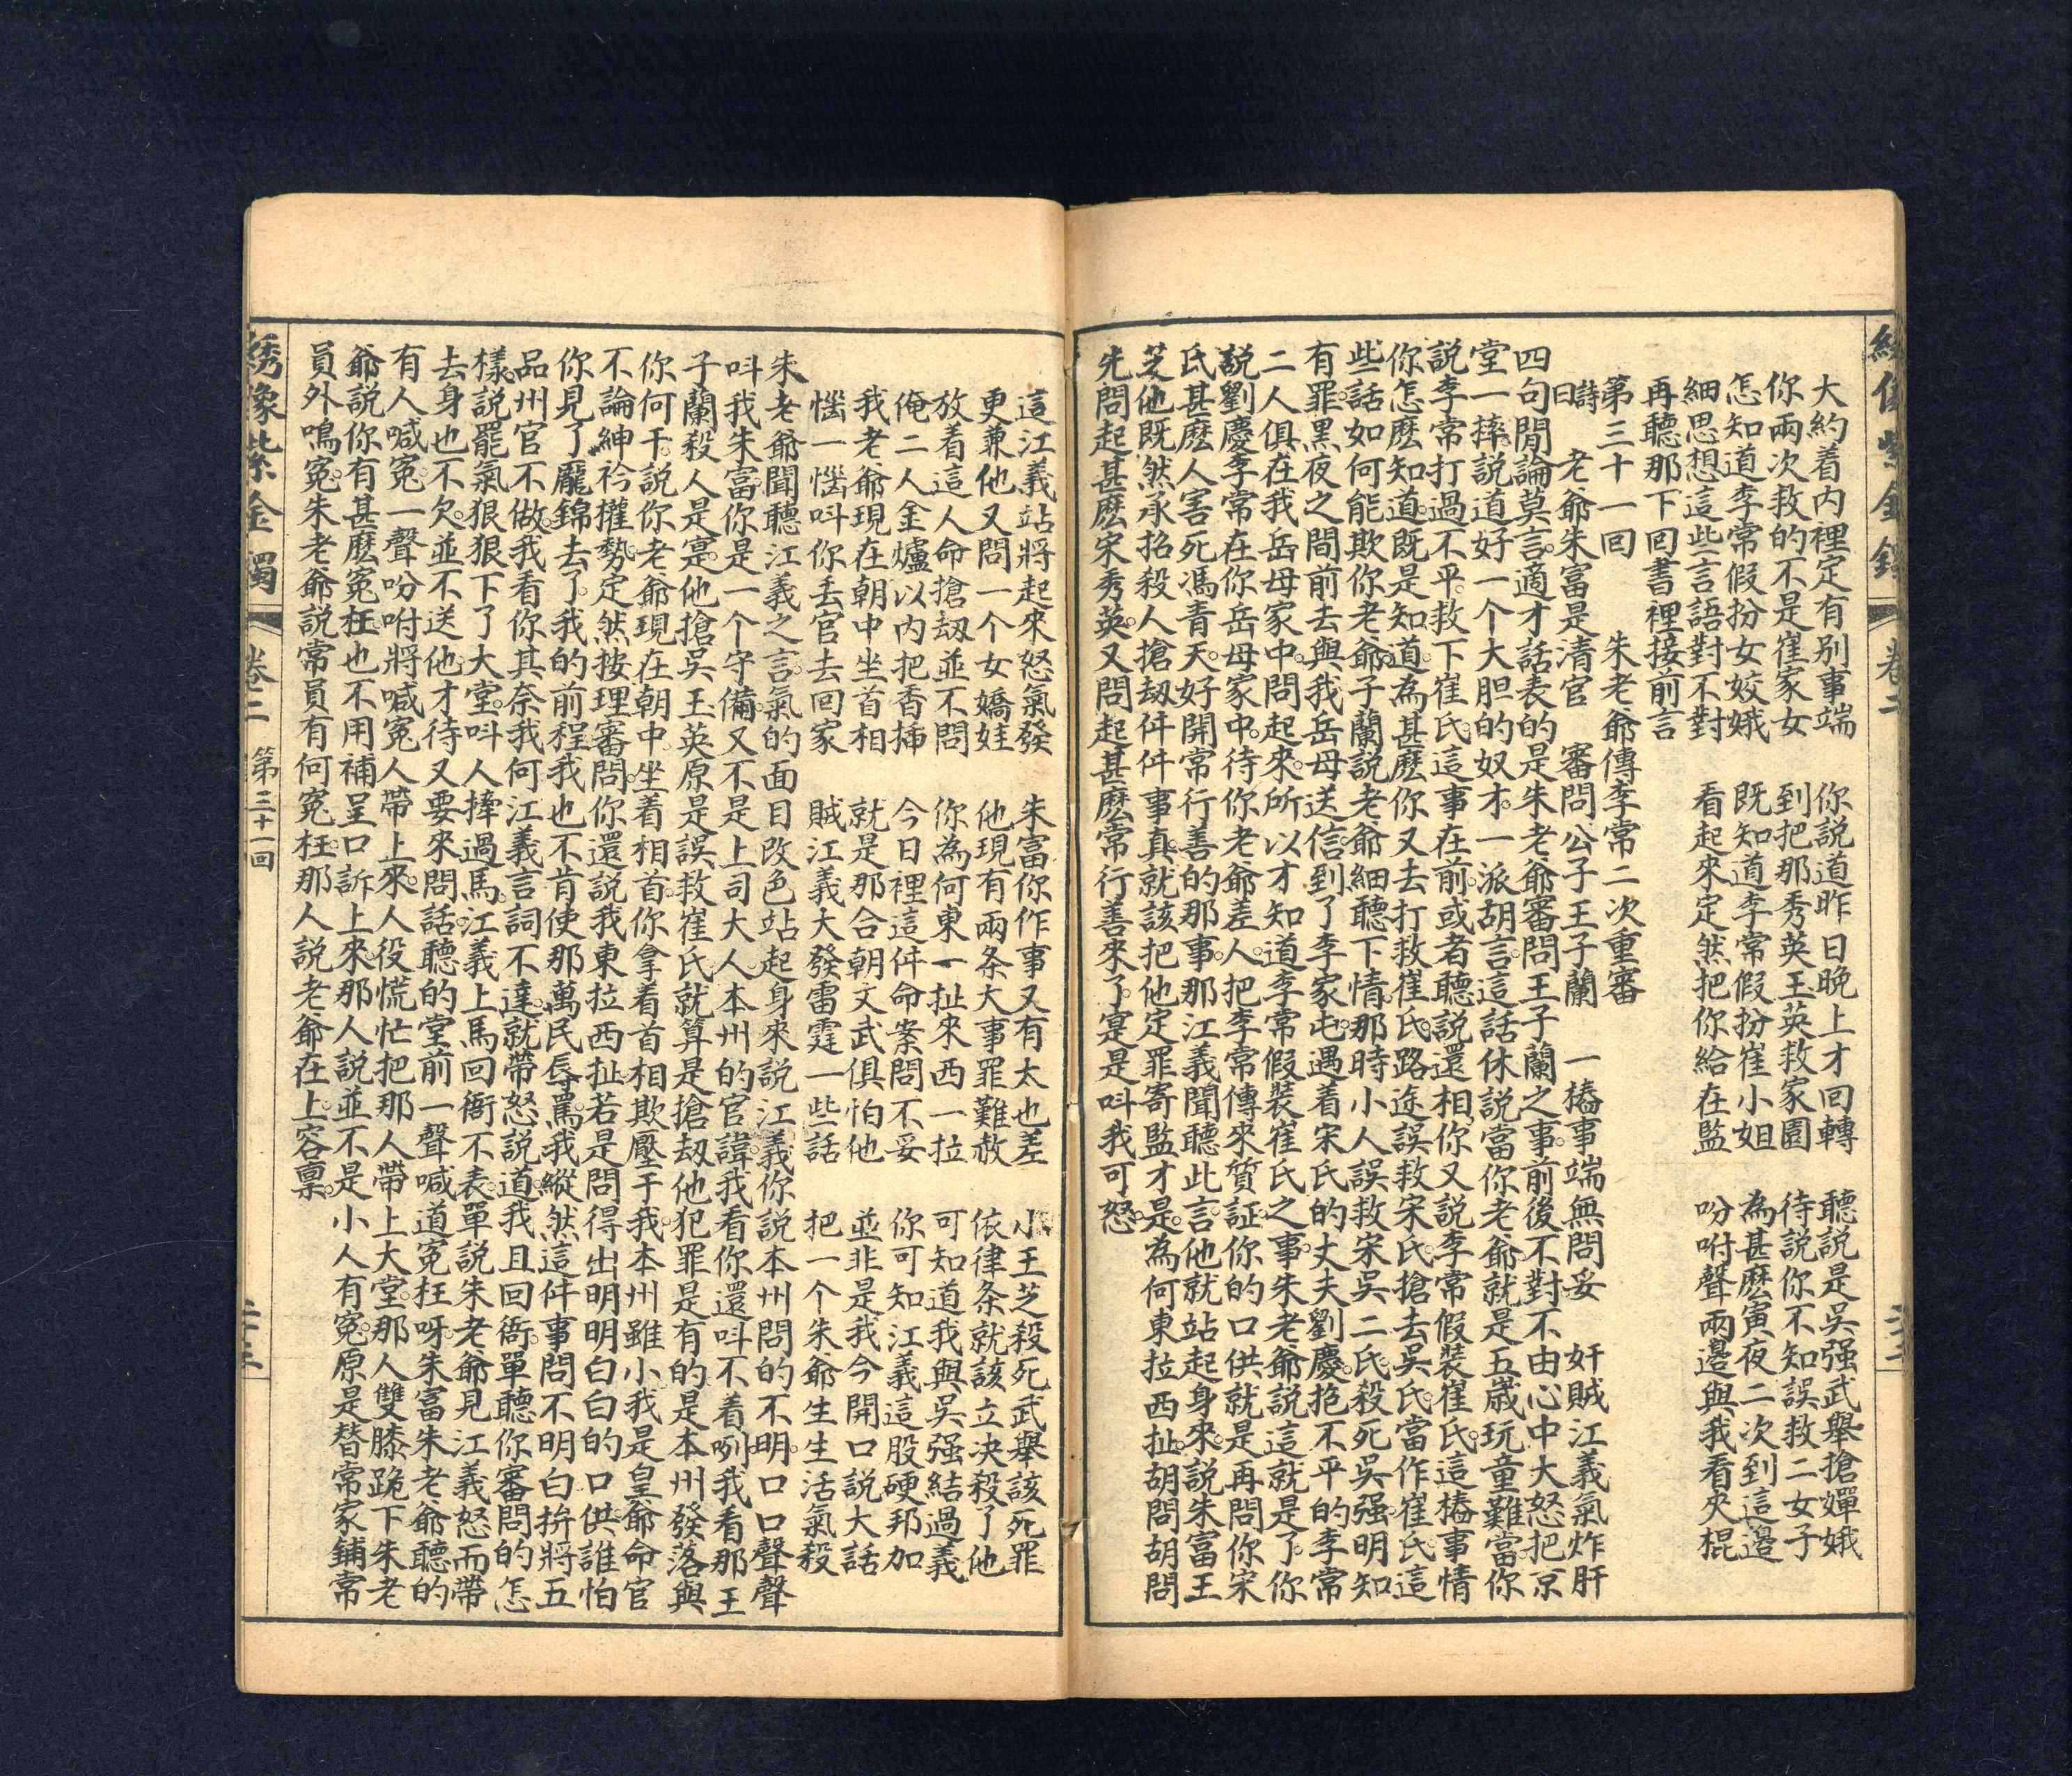 大約着内裡定有别事端　你説道昨日晚上才回轉　聽説是吳强武舉搶嬋娥
你兩次救的不是崔家女　到把那秀英王英救家園　待説你不知誤救二女子
怎知道李常假扮女姣娥　既知道李常假扮崔小姐　為甚麽寅夜二次到這邊
細思想這些言語對不對　看起來定然把你給在監　吩咐聲兩邊與我看夾棍
再聽那下回書裡接前言
第三十一回　朱老爺傳李常二次重審
詩曰　老爺朱富是清官　審問公子王子蘭　一樁事端無問妥　奸賊江義氣炸肝
四句閒論莫言。適才話表的是朱老爺審問王子蘭之事。前後不對。不由心中大怒把京
堂一摔。説道好一个大胆的奴才。一派胡言。這話休説當你老爺就是五嵗玩童難當。你
説李常打過不平。救下崔氏這事在前。或者聽説還相。你又説李常假裝崔氏。這樁事情
你怎麽知道。既是知道。為甚麽你又去打救崔氏。路途誤救宋氏。搶去吳氏。當作崔氏。這
些話如何能欺你老爺。子蘭説老爺細聽下情。那時小人誤救宋吳二氏。殺死吳强。明知
有罪。黑夜之間前去與我岳母送信。到了李家屯遇着宋氏的丈夫劉慶。抱不平的李常
二人俱在我岳母家中。問起來。所以才知道李常假裝崔氏之事。朱老爺説這就是了。你
説劉慶李常在你岳母家中。待你老爺差人。把李常傳來質証你的口供就是。再問你宋
氏甚麽人害死馮青天。好開常行善的那事。那江義聞聽此言。他就站起身來。説朱富王
芝他既然承招殺人搶刼件件事真。就該把他定罪寄監才是。為何東拉西扯。胡問胡問
先問起甚麽宋秀英。又問起甚麽常行善來了。寔是呌我可怒。
綉像紫金鐲　卷二　第三十一回　二十三
這江義站將起來怒氣發　朱富你作事又有太也差　小王芝殺死武舉該死罪
更兼他又問一个女嬌娃　他現有兩条大事罪難赦　依律条就該立决殺了他
放着這人命搶刼並不問　你為何東一扯來西一拉　可知道我與吳强結過義
俺二人金爐以内把香揷　今日裡這件命案問不妥　你可知江義這股硬邦加
我老爺現在朝中坐首相　就是那合朝文武俱怕他　並非是我今開口説大話
惱一惱呌你丢官去回家　賊江義大發雷霆一些話　把一个朱爺生生活氣殺
朱老爺聞聽江義之言。氣的面目改色站起身來説江義。你説本州問的不明。口口聲聲
呌我朱富。你是一个守備。又不是上司大人。本州的官諱。我看你還呌不着咧。我看那王
子蘭殺人是寔。他搶吳王英原是誤救崔氏。就算是搶刼他犯罪是有的。是本州發落與
你何干。説你老爺現在朝中。坐着相首。你拿着首相欺壓于我。本州雖小。我是皇爺命官
不論紳衿擢勢。定然按理審問。你還説我東拉西扯。若是問得出明明白白的口供。誰怕
你見了龐錦去了。我的前程我也不肯使那萬民辱罵。我縱然這件事問不明白。拚將五
品州官不做。我看你其奈我何。江義言詞不達。就帶怒説道。我且回衙。單聽你審問的怎
樣。説罷氣狠狠下了大堂。呌人摔過馬。江義上馬回衙不表。單説朱老爺見江義怒而帶
去身也不欠。並不送他。才待又要來問話。聽的堂前一聲喊道寃枉呀。朱富朱老爺聽的
有人喊寃。一聲吩咐將喊寃人帶上來。人役慌忙把那人帶上大堂。那人雙膝跪下。朱老
爺説你有甚麽寃枉。也不用補呈口訴上來。那人説並不是小人有寃。原是替常家鋪常
員外鳴寃。朱老爺説常員有何寃枉。那人説老爺在上。容禀。